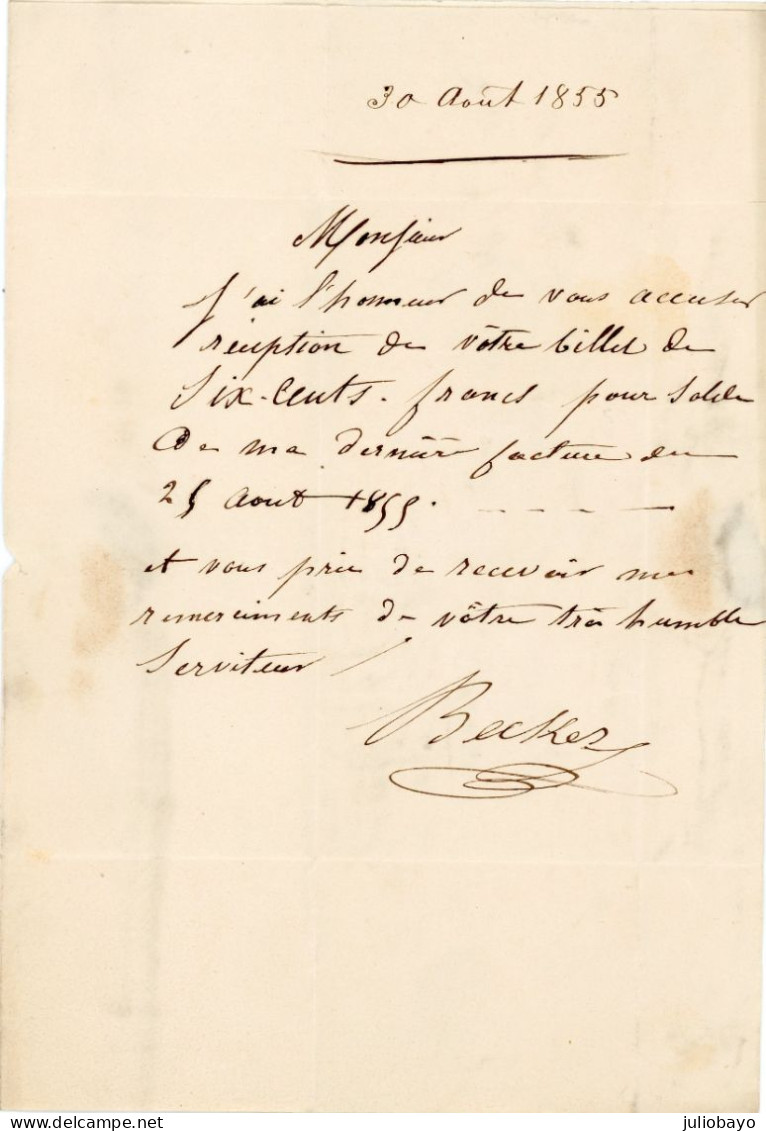 30 Août 1855
Monsieur
J'ai l'honneur de vous accuser
réception de vôtre billet de
Six-Cents francs pour Solde
De ma dernière facture du
25 Aout 1855. - - - -
et vous prie de recevoir mes
remerciments de vôtre très humble
Serviteur /
Becker
juliobayo